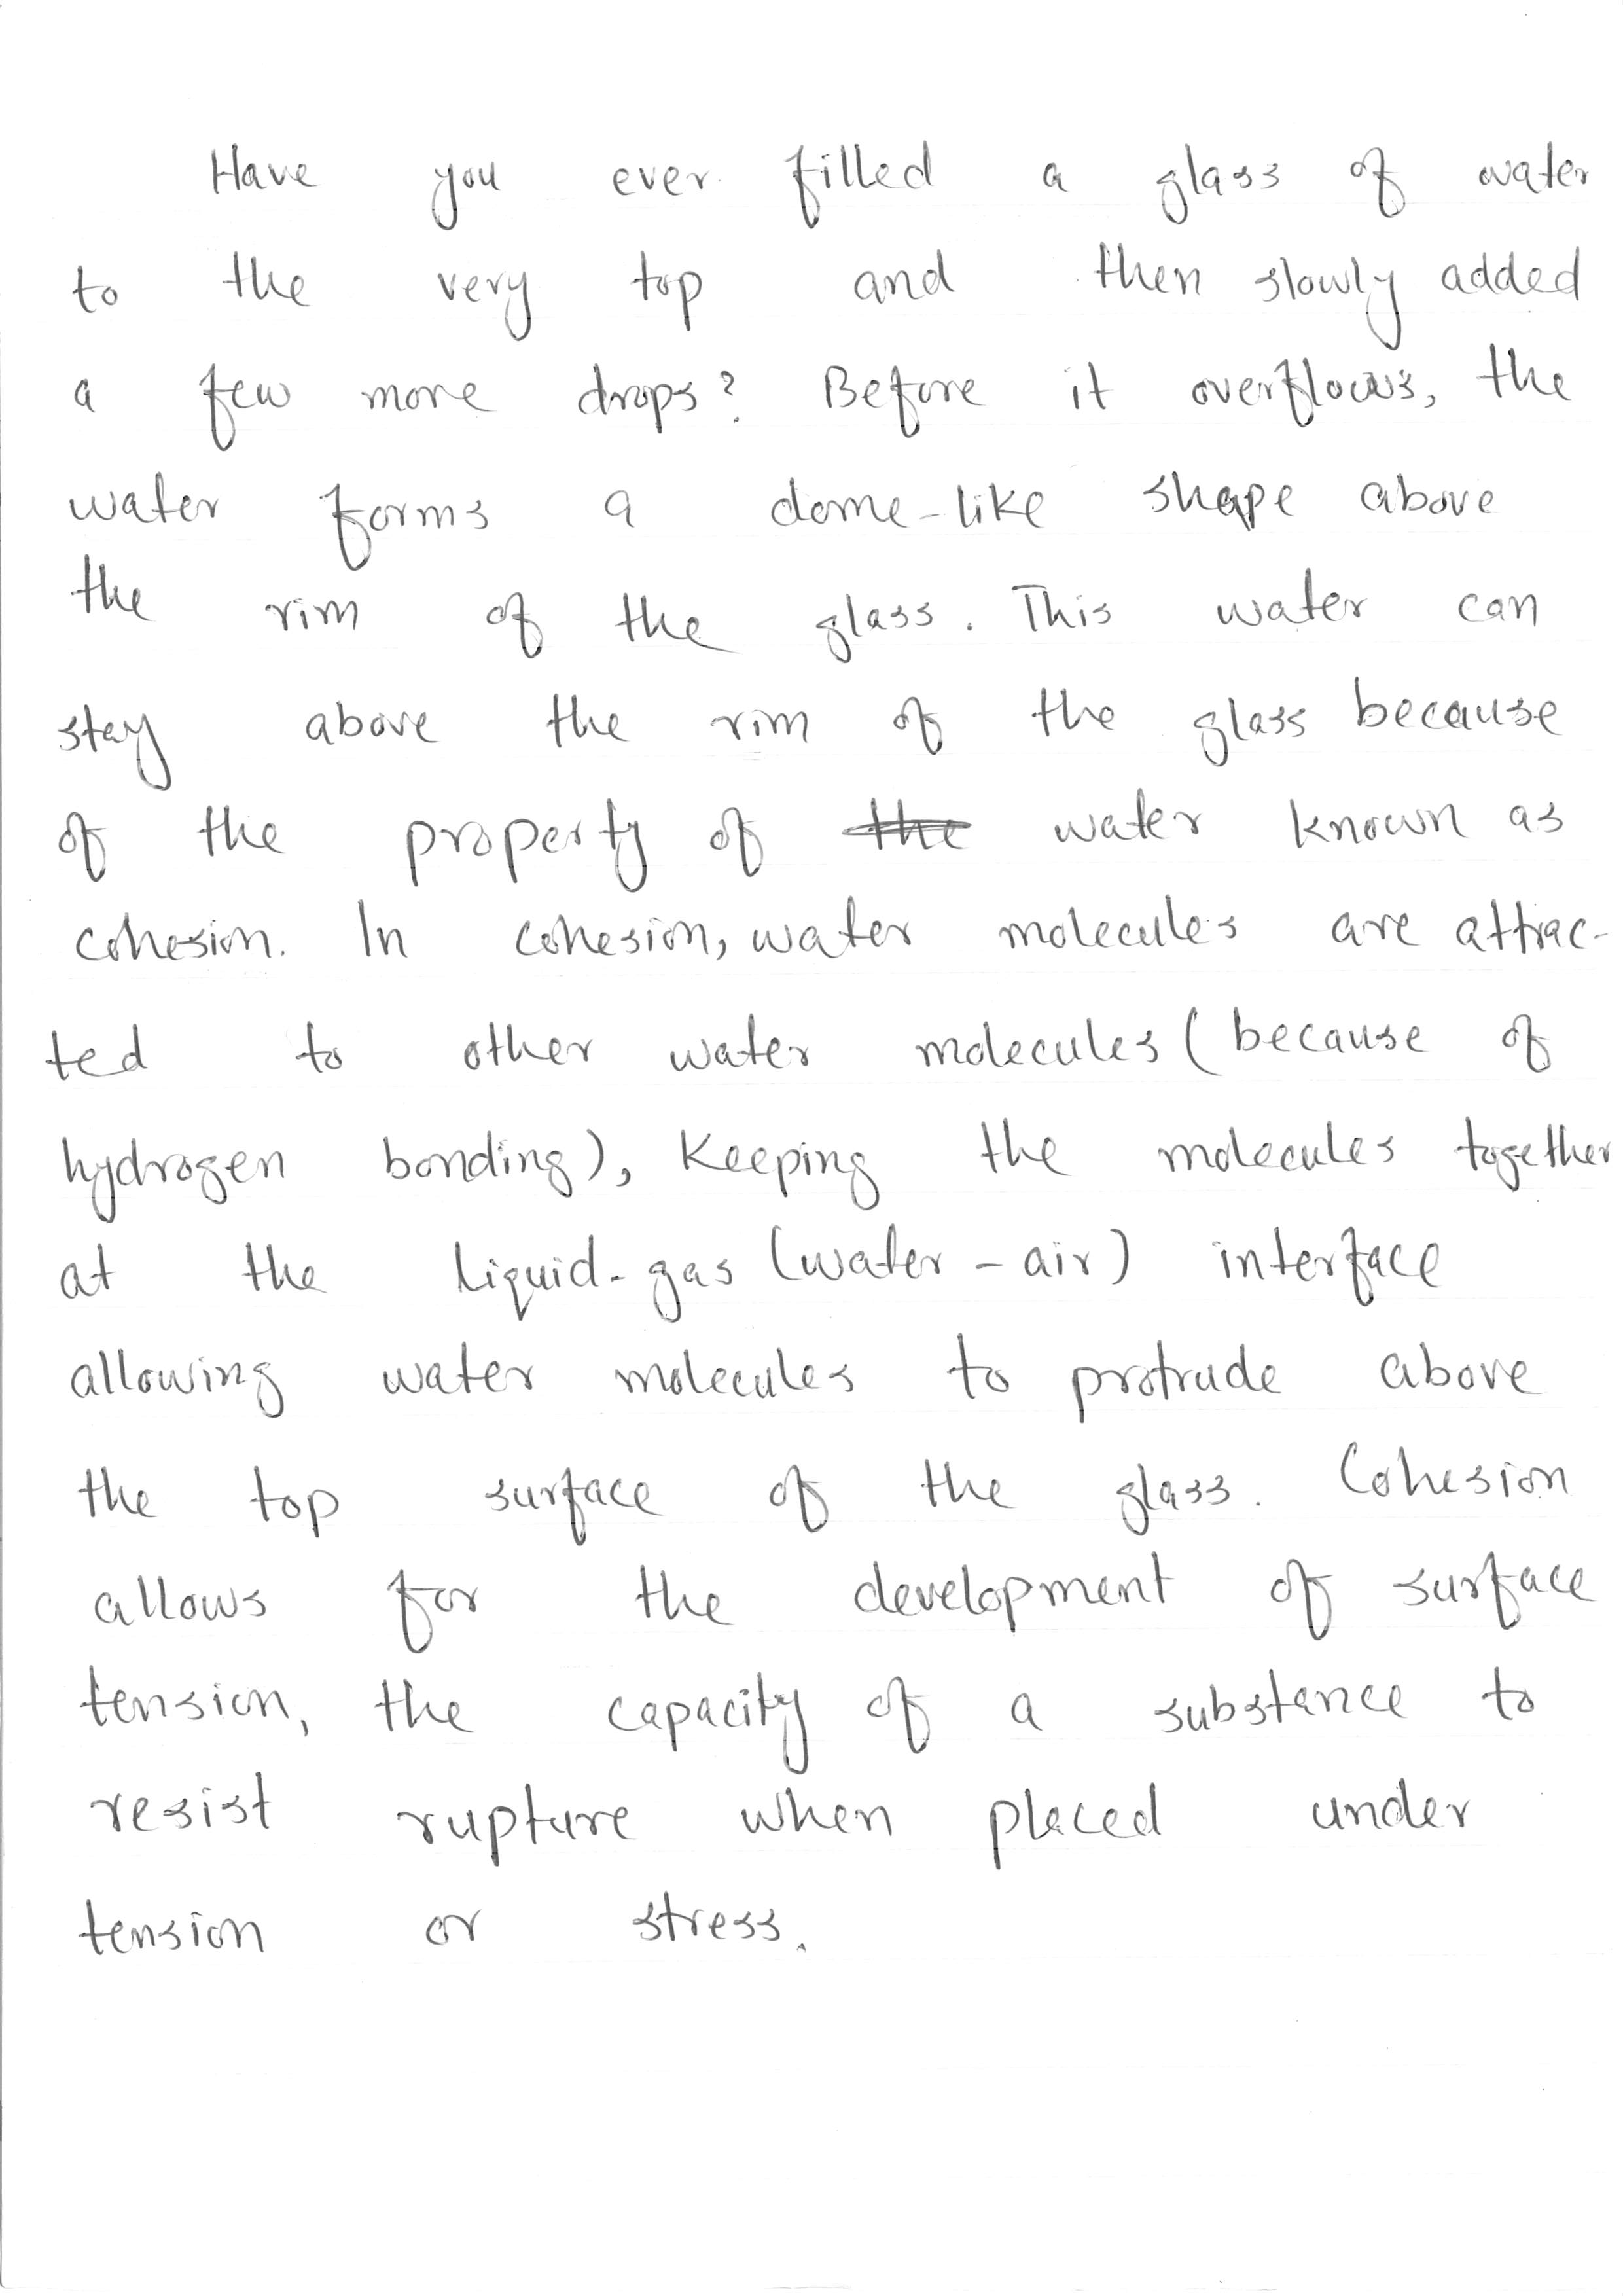 Have you ever filled a glass of water
to the very top and then slowly added
a few more drops? Before it overflows, the
water forms a dome-like shape above
the rim of the glass. This water can
stay above the rim of the glass because
of the property of the water known as
cohesion. In cohesion, water molecules are attrac-
ted to other water molecules (because of
hydrogen bonding), keeping the molecules together
at the liquid-gas (water-air) interface
allowing water molecules to protrude above
the top surface of the glass. Cohesion
allows for the development of surface
tension, the capacity of a substance to
resist rupture when placed under
tension or stress.